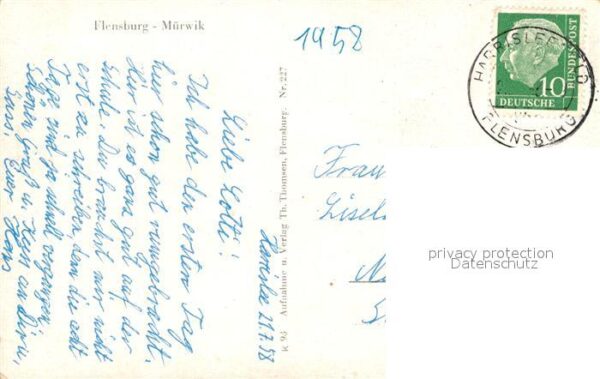 Flensburg - Mürwik
1958
HARRISLEEFELD
FLENSBURG
10
DEUTSCHE
BUNDESPOST
21.7.58
Liebe Lotti!
Ich habe den ersten Tag
hier schon gut rumgebracht.
Hier ist es ganz gut auf der
Schule. Du brauchst mir nicht
erst zu schreiben denn die acht
Tage sind ja schnell vergangen.
Gruß u. an Dir u.
Euer Hans
K 93 Aufnahme u. Verlag Th. Thomsen, Flensburg Nr. 227
Frau
privacy protection
Datenschutz